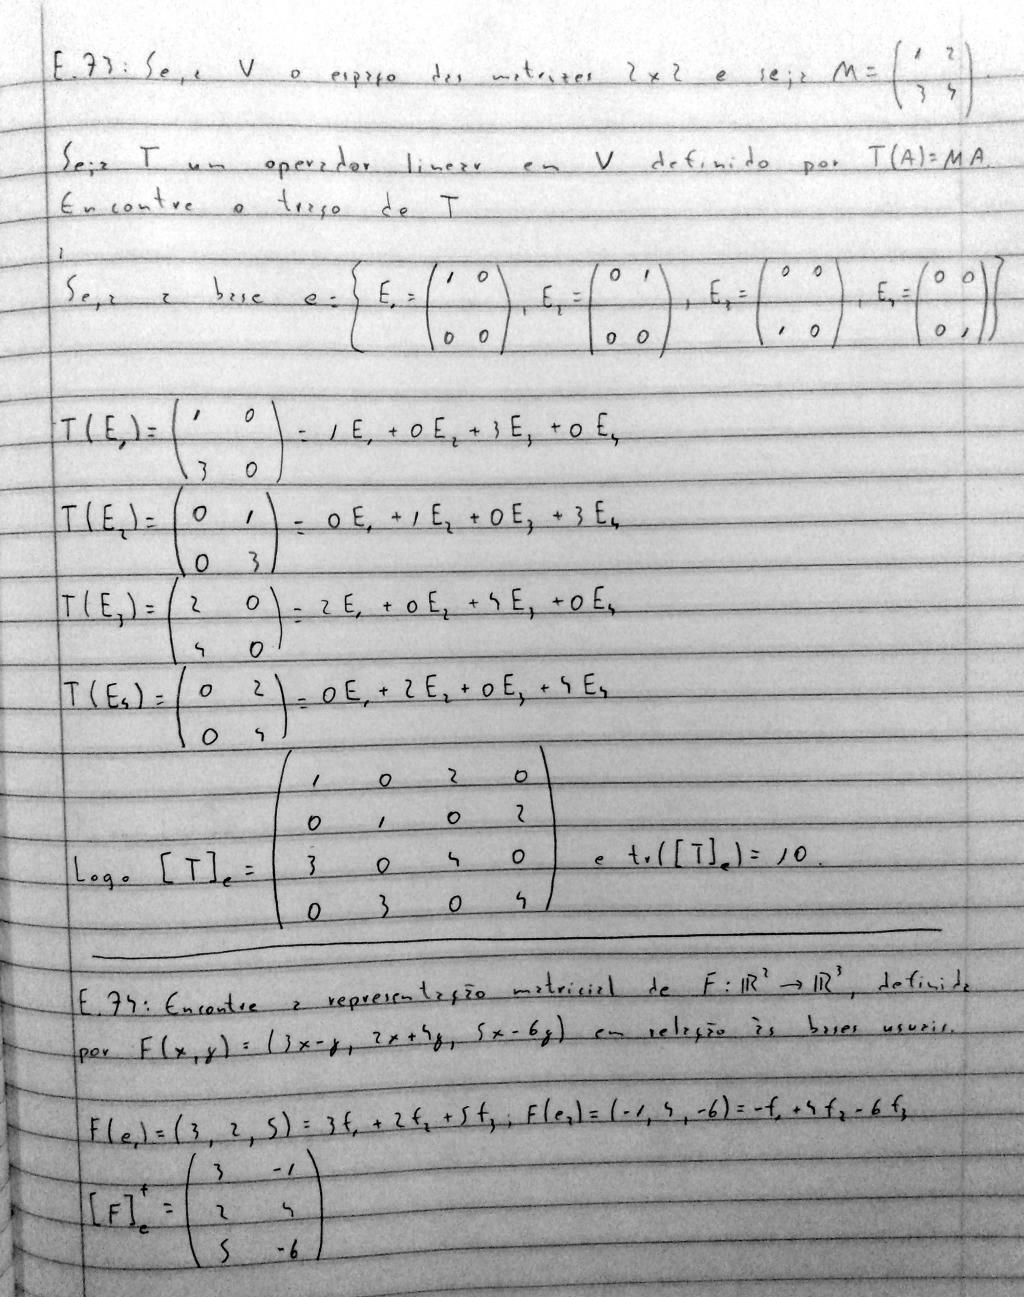 E.73: Seja V o espaço das matrizes 2x2 e seja M = (1 2
3 4).
Seja T um operador linear em V definido por T(A)=MA.
Encontre o traço de T
Seja a base e = { E₁ = (1 0
0 0), E₂ = (0 1
0 0), E₃ = (0 0
1 0), E₄ = (0 0
0 1)}
T(E₁) = (1 0
3 0) = 1E₁ + 0E₂ + 3E₃ + 0E₄
T(E₂) = (0 1
0 3) = 0E₁ + 1E₂ + 0E₃ + 3E₄
T(E₃) = (2 0
4 0) = 2E₁ + 0E₂ + 4E₃ + 0E₄
T(E₄) = (0 2
0 4) = 0E₁ + 2E₂ + 0E₃ + 4E₄
Logo [T]ₑ = (1 0 2 0
0 1 0 2
3 0 4 0
0 3 0 4) e tr([T]ₑ) = 10.
E.74: Encontre a representação matricial de F: ℝ² → ℝ³, definida
por F(x,y) = (3x-y, 2x+4y, 5x-6y) em relação às bases usuais.
F(e₁) = (3, 2, 5) = 3f₁ + 2f₂ + 5f₃; F(e₂) = (-1, 4, -6) = -f₁ + 4f₂ - 6f₃
[F]ₑᶠ = (3 -1
2 4
5 -6)